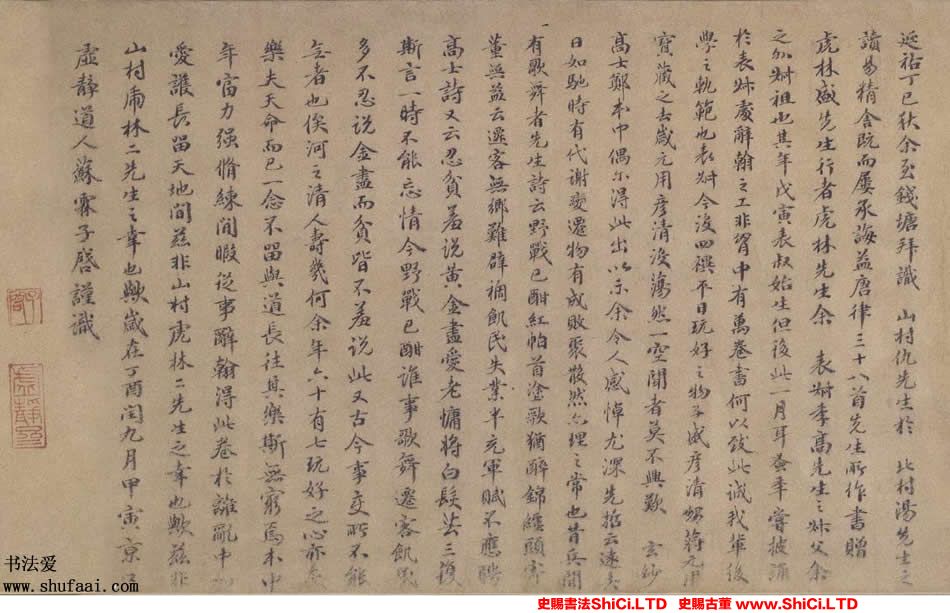 延祐丁巳秋余至錢塘拜識山村仇先生於北村湯先生之
讀易精舍既而屢承誨益唐律三十八首先生所作書贈
虎林盛先生行者虎林先生余表叔季高先生之叔父余
之外叔祖也其年戊寅表叔始生但後此一月耳蚤年嘗披誦
於表叔處辭翰之工非胷中有萬卷書何以致此誠我輩後
學之軌範也表叔今沒四禩不日玩好之物子威彥清甥蔣元用
寶藏之去歲元用彥清沒蕩然一空聞者莫不興歎玄妙
高士鄭本中偶爾得此出以示余令人感悼尤深先哲云逺矣
日如馳時有代謝變遷物有成敗聚散然亦理之常也昔兵間
有歌舞者先生詩云野戰已酣紅帕首塗歌猶醉錦纏頭寄
董無益云遷客無鄉難辟禍飢民失業半充軍賦不應聘
高士詩又云忍貧羞說黃金盡愛老慵將白髮芸三復
斯言一時不能忘情今野戰已酣誰事歌舞遷客飢民
多不忍說金盡而貧皆不羞說此又古今事変所不能
無者也俟河之清人壽幾何余年六十有七玩好之心亦
樂夫天命而已一念不留與道長往其樂斯無窮焉本中
年富力强脩練閒暇從事辭翰得此卷於離亂中
愛護長留天地間茲非山村虎林二先生之幸也歟茲非
山村虎林二先生之幸也歟歲在丁酉閏九月甲寅京口
虛靜道人蘇霖子啓謹識
书法爱
www.shufaai.com
史賜書法ShiCi.LTD 史賜古董 www.ShiCi.LTD